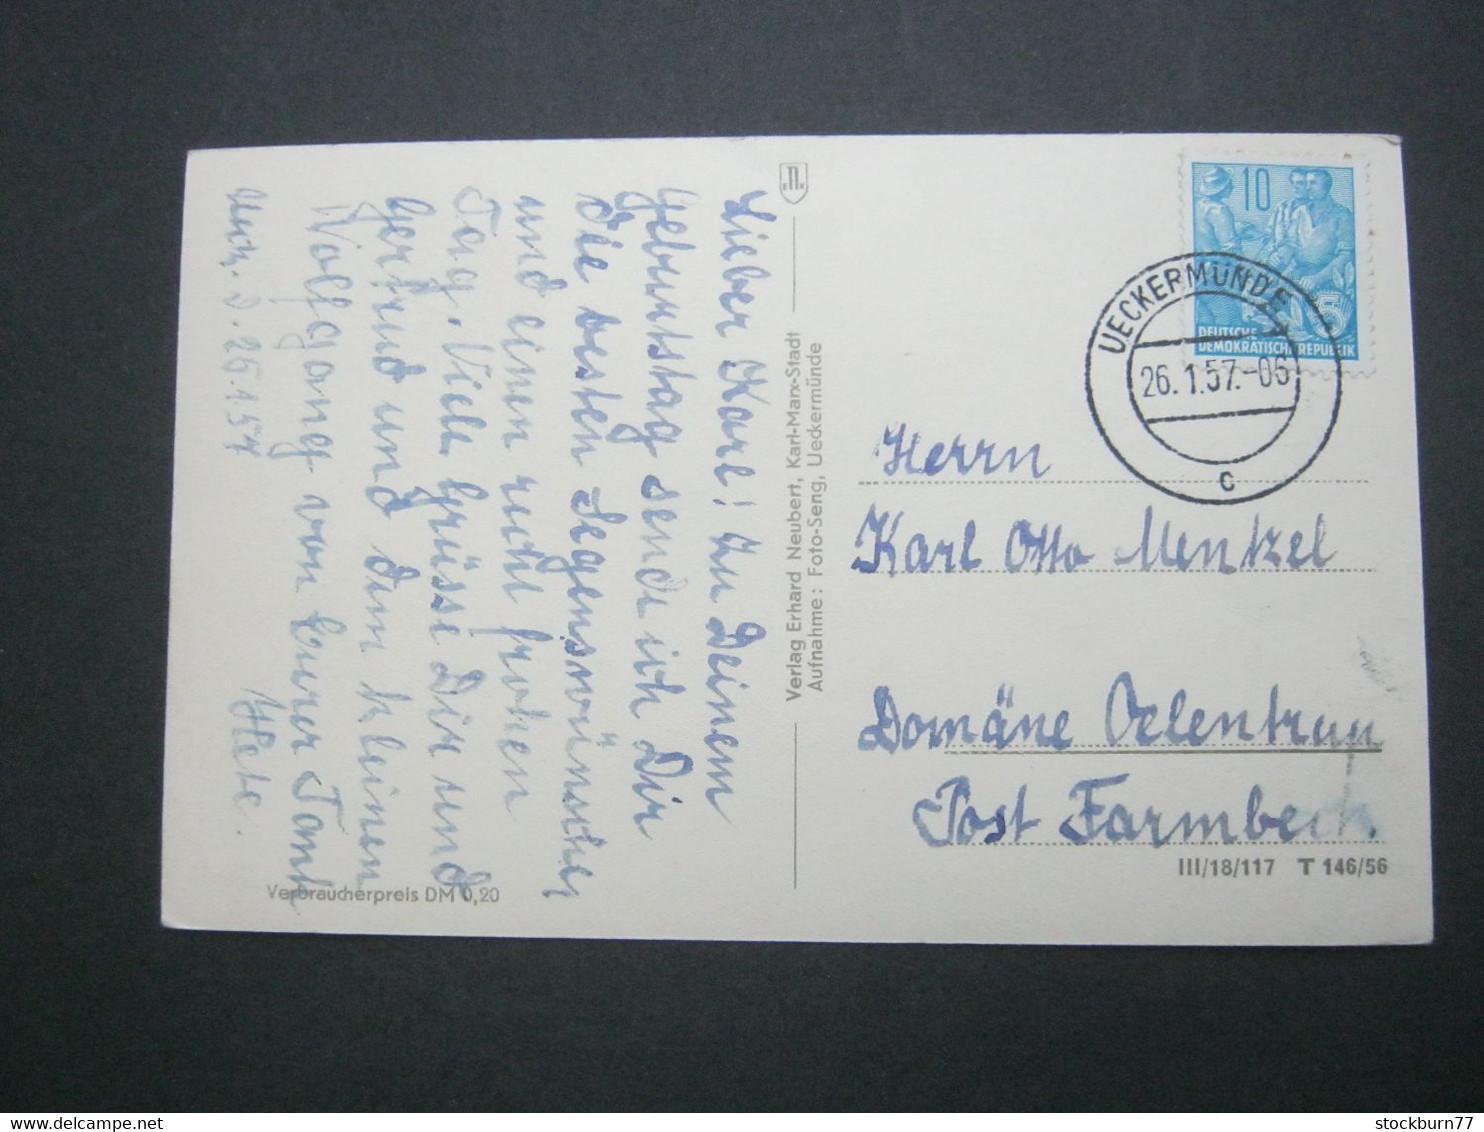 Lieber Karl! Zu Deinem
Geburtstag sende ich Dir
die besten Segenswünsche
und einen recht frohen
Tag. Viele Grüsse Dir und
Gertrud und dem kleinen
Wolfgang von Eurer Tante
Ueck. d. 26.1.57
Verbraucherpreis DM 0,20
Verlag Erhard Neubert, Karl-Marx-Stadt
Aufnahme: Foto-Seng, Ueckermünde
10
5
DEUTSCHE
DEMOKRATISCHE REPUBLIK
UECKERMÜNDE 1
26.1.57.-06
c
Herrn
Karl Otto Menkel
Domäne Oelentrup
Post Farmbeck.
III/18/117 T 146/56
stockburn77